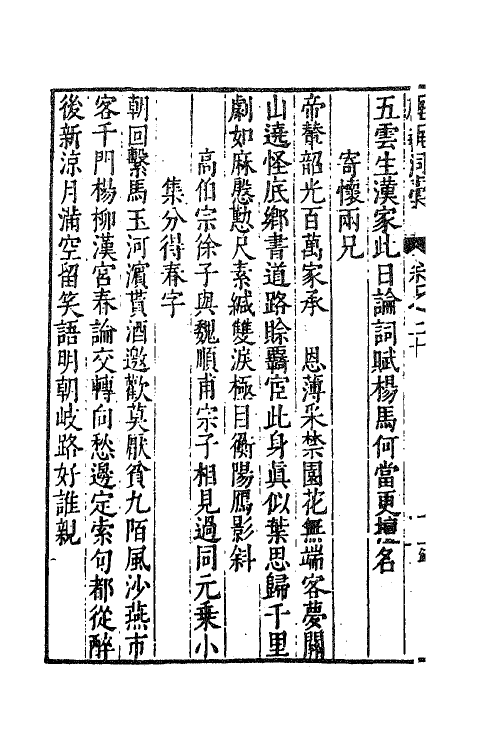 洞稾 卷之 二十
五雲生漢家此日論詞賦楊馬何當更擅名
寄懷兩兄
帝輦韶光百萬家承　恩薄采禁園花無端客夢關
山遶怪底鄉書道路賒羇宦此身眞似葉思歸千里
劇如麻慇懃尺素緘雙淚極目衡陽鴈影斜
高伯宗徐子與魏順甫宗子相見過同元乘小
集分得春字
朝回繫馬玉河濱貰酒邀歡莫厭貧九陌風沙燕市
客千門楊柳漢宮春論交轉向愁邊定索句都從醉
後新涼月滿空留笑語明朝岐路好誰親